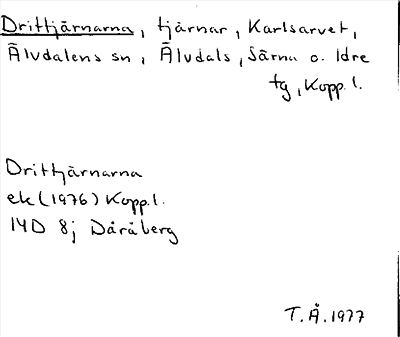 Drittjärnarna, tjärnar, Karlsarvet,
Älvdalens sn, Älvdals, Särna o. Idre
tg, Kopp. l.
Drittjärnarna
ek (1976) Kopp. l.
14D 8j Dåråberg
T.Å. 1977